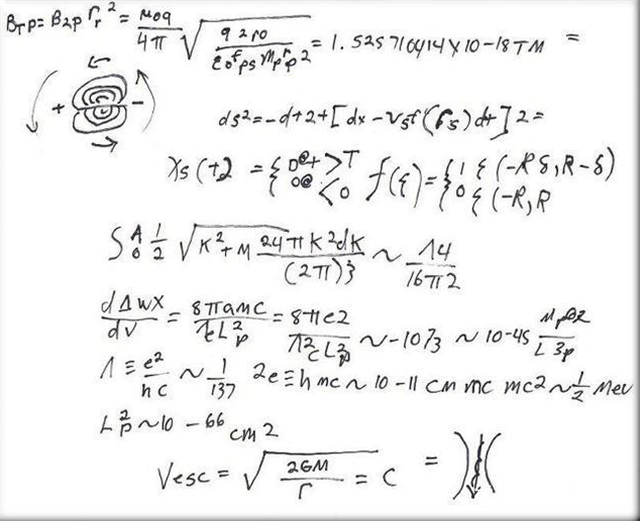 BTP = B2P Γr² = μ0q/4π √(q2r0/ε0fps Mpp2) = 1.525710414 x 10-18 TM =
+ -
ds²=-d+2+[dx-vsf(rs)dt]2=
Xs(+2 = { D@+ > T 0@ < 0 f(ξ) = { 1 ξ (-Rδ,R-δ) 0 ξ (-R,R
S A 0 1/2 √K²+M 24πk²dK/(2π)} ~ 14/16π2
dΔWX/dv = 8πamc/ƛL²p = 8πe2/Λ²cL²p ~-1073 ~ 10-45 Mp@2/L3p
Λ ≡ e²/hc ~ 1/137 2e≡h mc ~ 10-11 cm mc mc2 ~ 1/2 Mev
L²p ~10 - 66 cm2
Vesc = √(2GM/r) = C =